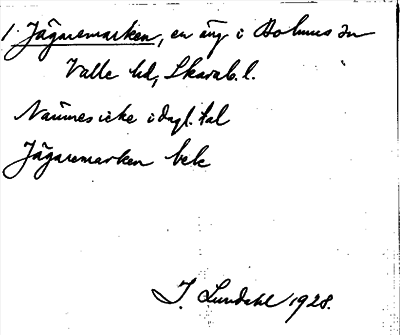 1. Jägaremarken, en äng i Bolums sn
Valle hd, Skarab. l.
Nämnes icke i dagl. tal
Jägaremarken bek
I. Lundahl 1928.